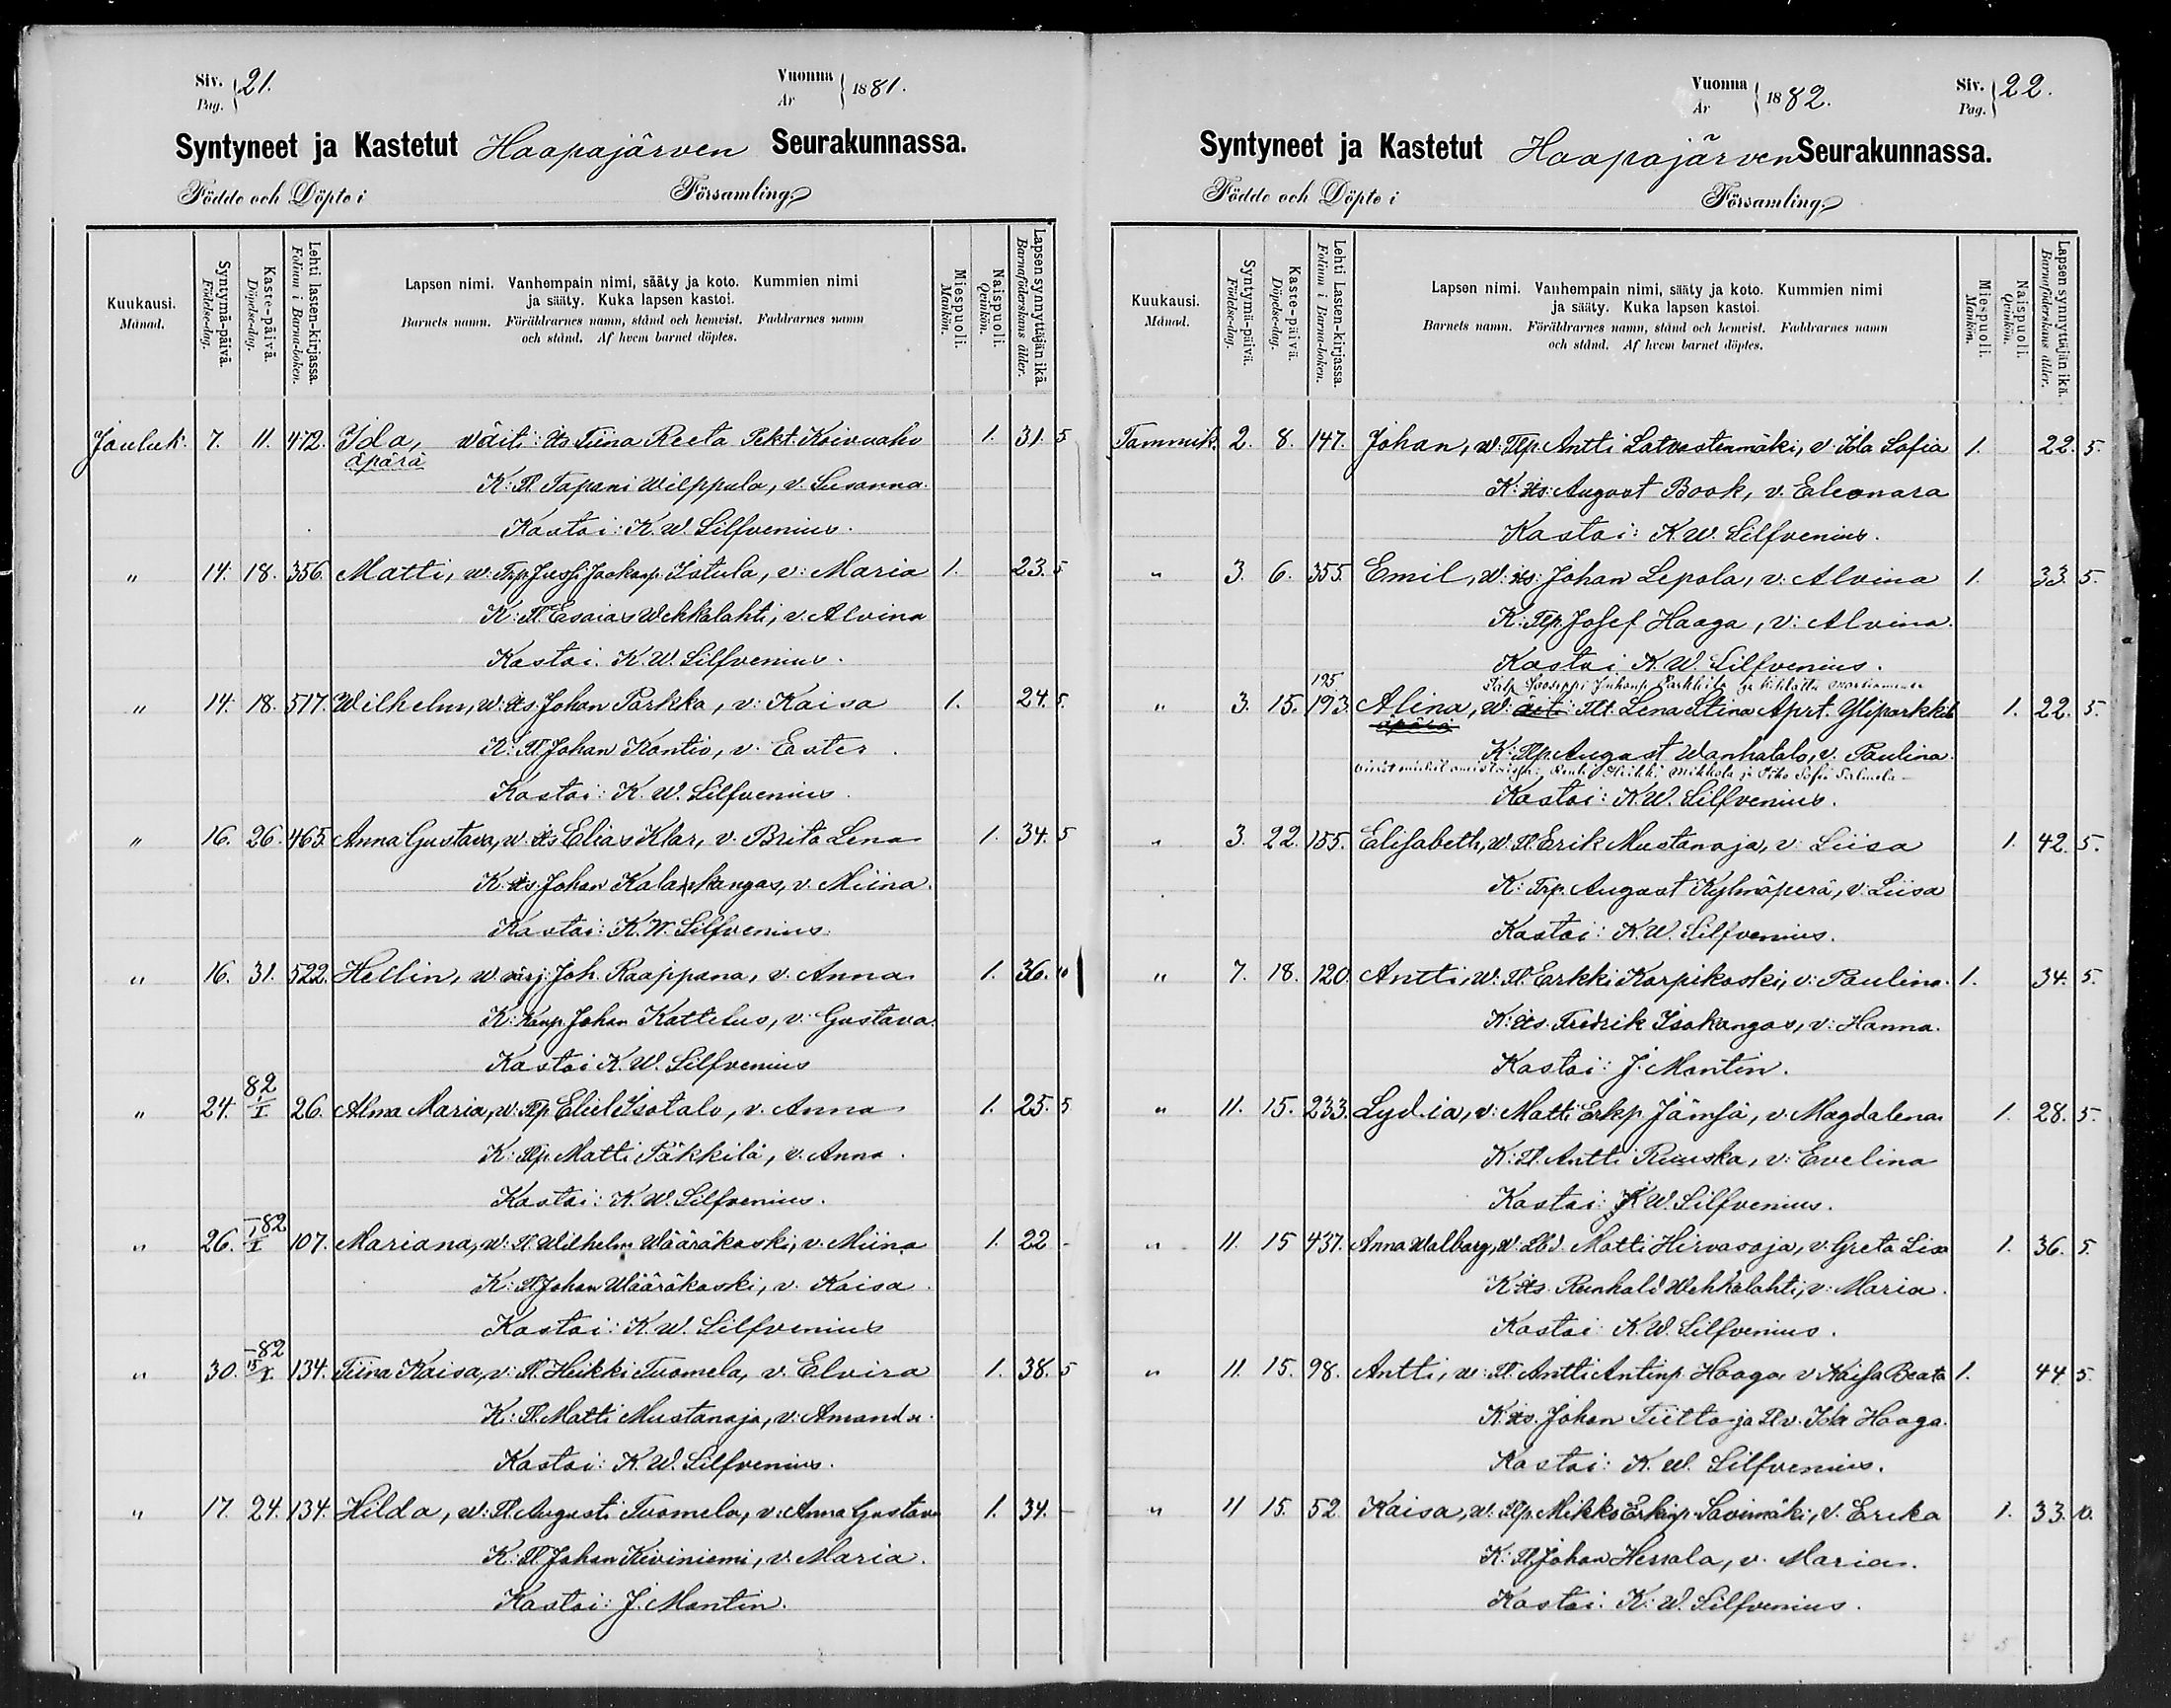 Siv. 21.
Pag.
Vuonna 1881.
År
Syntyneet ja Kastetut Haapajärven Seurakunnassa.
Födde och Döpte i Församling.
Kuukausi.
Månad.
Syntymä-päivä.
Födelse-dag.
Kaste-päivä.
Döpelse-dag.
Lehti lasten-kirjassa.
Folium i Barna-boken.
Lapsen nimi. Vanhempain nimi, sääty ja koto. Kummien nimi
ja sääty. Kuka lapsen kastoi.
Barnets namn. Föräldrarnes namn, stånd och hemvist. Faddrarnes namn
och stånd. Af hvem barnet döptes.
Miespuoli.
Mankön.
Naispuoli.
Qvinkön.
Lapsen synnyttäjän ikä.
Barnaföderskans ålder.
Jouluk. 7. 11. 472. Ida, w äiti: Its Tiina Reeta Pekt. Koivuaho 1. 31. 5
äpärä
K: Tl Tapani Wilppula, v. Susanna.
Kastoi: K. W. Silfvenius.
" 14. 18. 356. Matti, w. Trp. Jussi Jaakonp. Istula, v: Maria 1. 23. 5
K: Tl Esaias Wehkalahti, v. Alvina
Kastoi. K. W. Silfvenius.
" 14. 18. 517. Wilhelm, w. Its. Johan Parkka, v: Kaisa 1. 24. 5.
K: Tl Johan Kontio, v. Ester.
Kastoi: K. W. Silfvenius.
" 16. 26. 465. Anna Gustava, w. Its Elias Klar, v. Brita Lena 1. 34. 5
K: Its Johan Kalaskangas, v. Miina.
Kastoi: K. W. Silfvenius.
" 16. 31. 522. Hellin, w värj. Joh. Raappana, v. Anna. 1. 36. 10
K: Kaup. Johan Kattelus, v: Gustava.
Kastoi K. W. Silfvenius
82
" 24. 1/I 26. Alma Maria, w. Tlp Eliel Isotalo, v. Anna 1. 25. 5
K: Tlp. Matti Päkkilä, v. Anna.
Kastoi: K. W. Silfvenius.
-82
" 26. 1/I 107. Mariana, w. Tl Wilhelm Wääräkoski, v. Miina 1. 22 -
K: Tl Johan Wääräkoski, v. Kaisa.
Kastoi: K. W. Silfvenius
-82
" 30. 15/I. 134. Tiina Kaisa, v: Tl. Heikki Tuomela, v. Elvira 1. 38. 5
K: Tl. Matti Mustanoja, v: Amanda.
Kastoi: K. W. Silfvenius.
" 17. 24. 134. Hilda, w: Tl Augusti Tuomela, v: Anna Gustava 1. 34. -
K: Tl Johan Kiviniemi, v. Maria.
Kastoi: J. Montin.
Vuonna 1882.
År
Siv. 22.
Pag.
Syntyneet ja Kastetut Haapajärven Seurakunnassa.
Födde och Döpte i Församling.
Kuukausi.
Månad.
Syntymä-päivä.
Födelse-dag.
Kaste-päivä.
Döpelse-dag.
Lehti Lasten-kirjassa.
Folium i Barna-boken.
Lapsen nimi. Vanhempain nimi, sääty ja koto. Kummien nimi
ja sääty. Kuka lapsen kastoi.
Barnets namn. Föräldrarnes namn, stånd och hemvist. Faddrarnes namn
och stånd. Af hvem barnet döptes.
Miespuoli.
Mankön.
Naispuoli.
Qvinkön.
Lapsen synnyttäjän ikä.
Barnaföderskans ålder.
Tammik. 2. 8. 147. Johan, w: Tlp. Antti Latvastenmäki, v. Ida Sofia 1. 22. 5.
K: Its. August Book, v. Eleonara
Kastoi: K. W. Silfvenius.
" 3. 6. 355. Emil, w: Its: Johan Lepola, v: Alvina 1. 33. 5.
K: Tlp. Josef Haaga, v: Alvina.
Kastoi K. W. Silfvenius.
195 Talp Joosippi Juhanp. Parkkila ja
" 3. 15. 193. Alina, w: äiti: Tlt. Lena Stina Aprt. Yliparkkila 1. 22. 5.
äpärä
K: Tlp. August Wanhatalo, v. Paulina.
Heikki Mikkola ja Sofia
Kastoi: K. W. Silfvenius.
" 3. 22. 155. Elisabeth, w. Tl Erik Mustanoja, v: Liisa 1. 42. 5.
K: Trp. August Kylmäperä, v: Liisa
Kastoi: K. W. Silfvenius.
" 7. 18. 120. Antti, w: Tl. Erkki Karpikoski, v: Paulina. 1. 34. 5.
K: Its. Fredrik Isokangas, v: Hanna.
Kastoi: J. Montin.
" 11. 15. 233. Lydia, v: Matti Erkp Jämsä, v. Magdalena 1. 28. 5.
K: Tl. Antti Ruuska, v: Evelina
Kastoi: K W. Silfvenius.
" 11. 15 437. Anna Walborg, w. Matti Hirvasoja, v: Greta Lisa 1. 36. 5.
K: Its. Reinhold Wehkalahti, v: Maria.
Kastoi K. W. Silfvenius.
" 11. 15. 98. Antti, w: Tl. Antti Antinp. Haaga v Kaisa Beata 1. 44. 5.
K: Its. Johan Tiitto ja Tl v. Ida Haaga.
Kastoi: K. W. Silfvenius.
" 11 15. 52 Kaisa, w: Tlp. Mikko Erkinp. Savimäki, v. Erika 1. 33. 10.
K: Tl Johan Hessala, v. Maria.
Kastoi. K. W. Silfvenius.